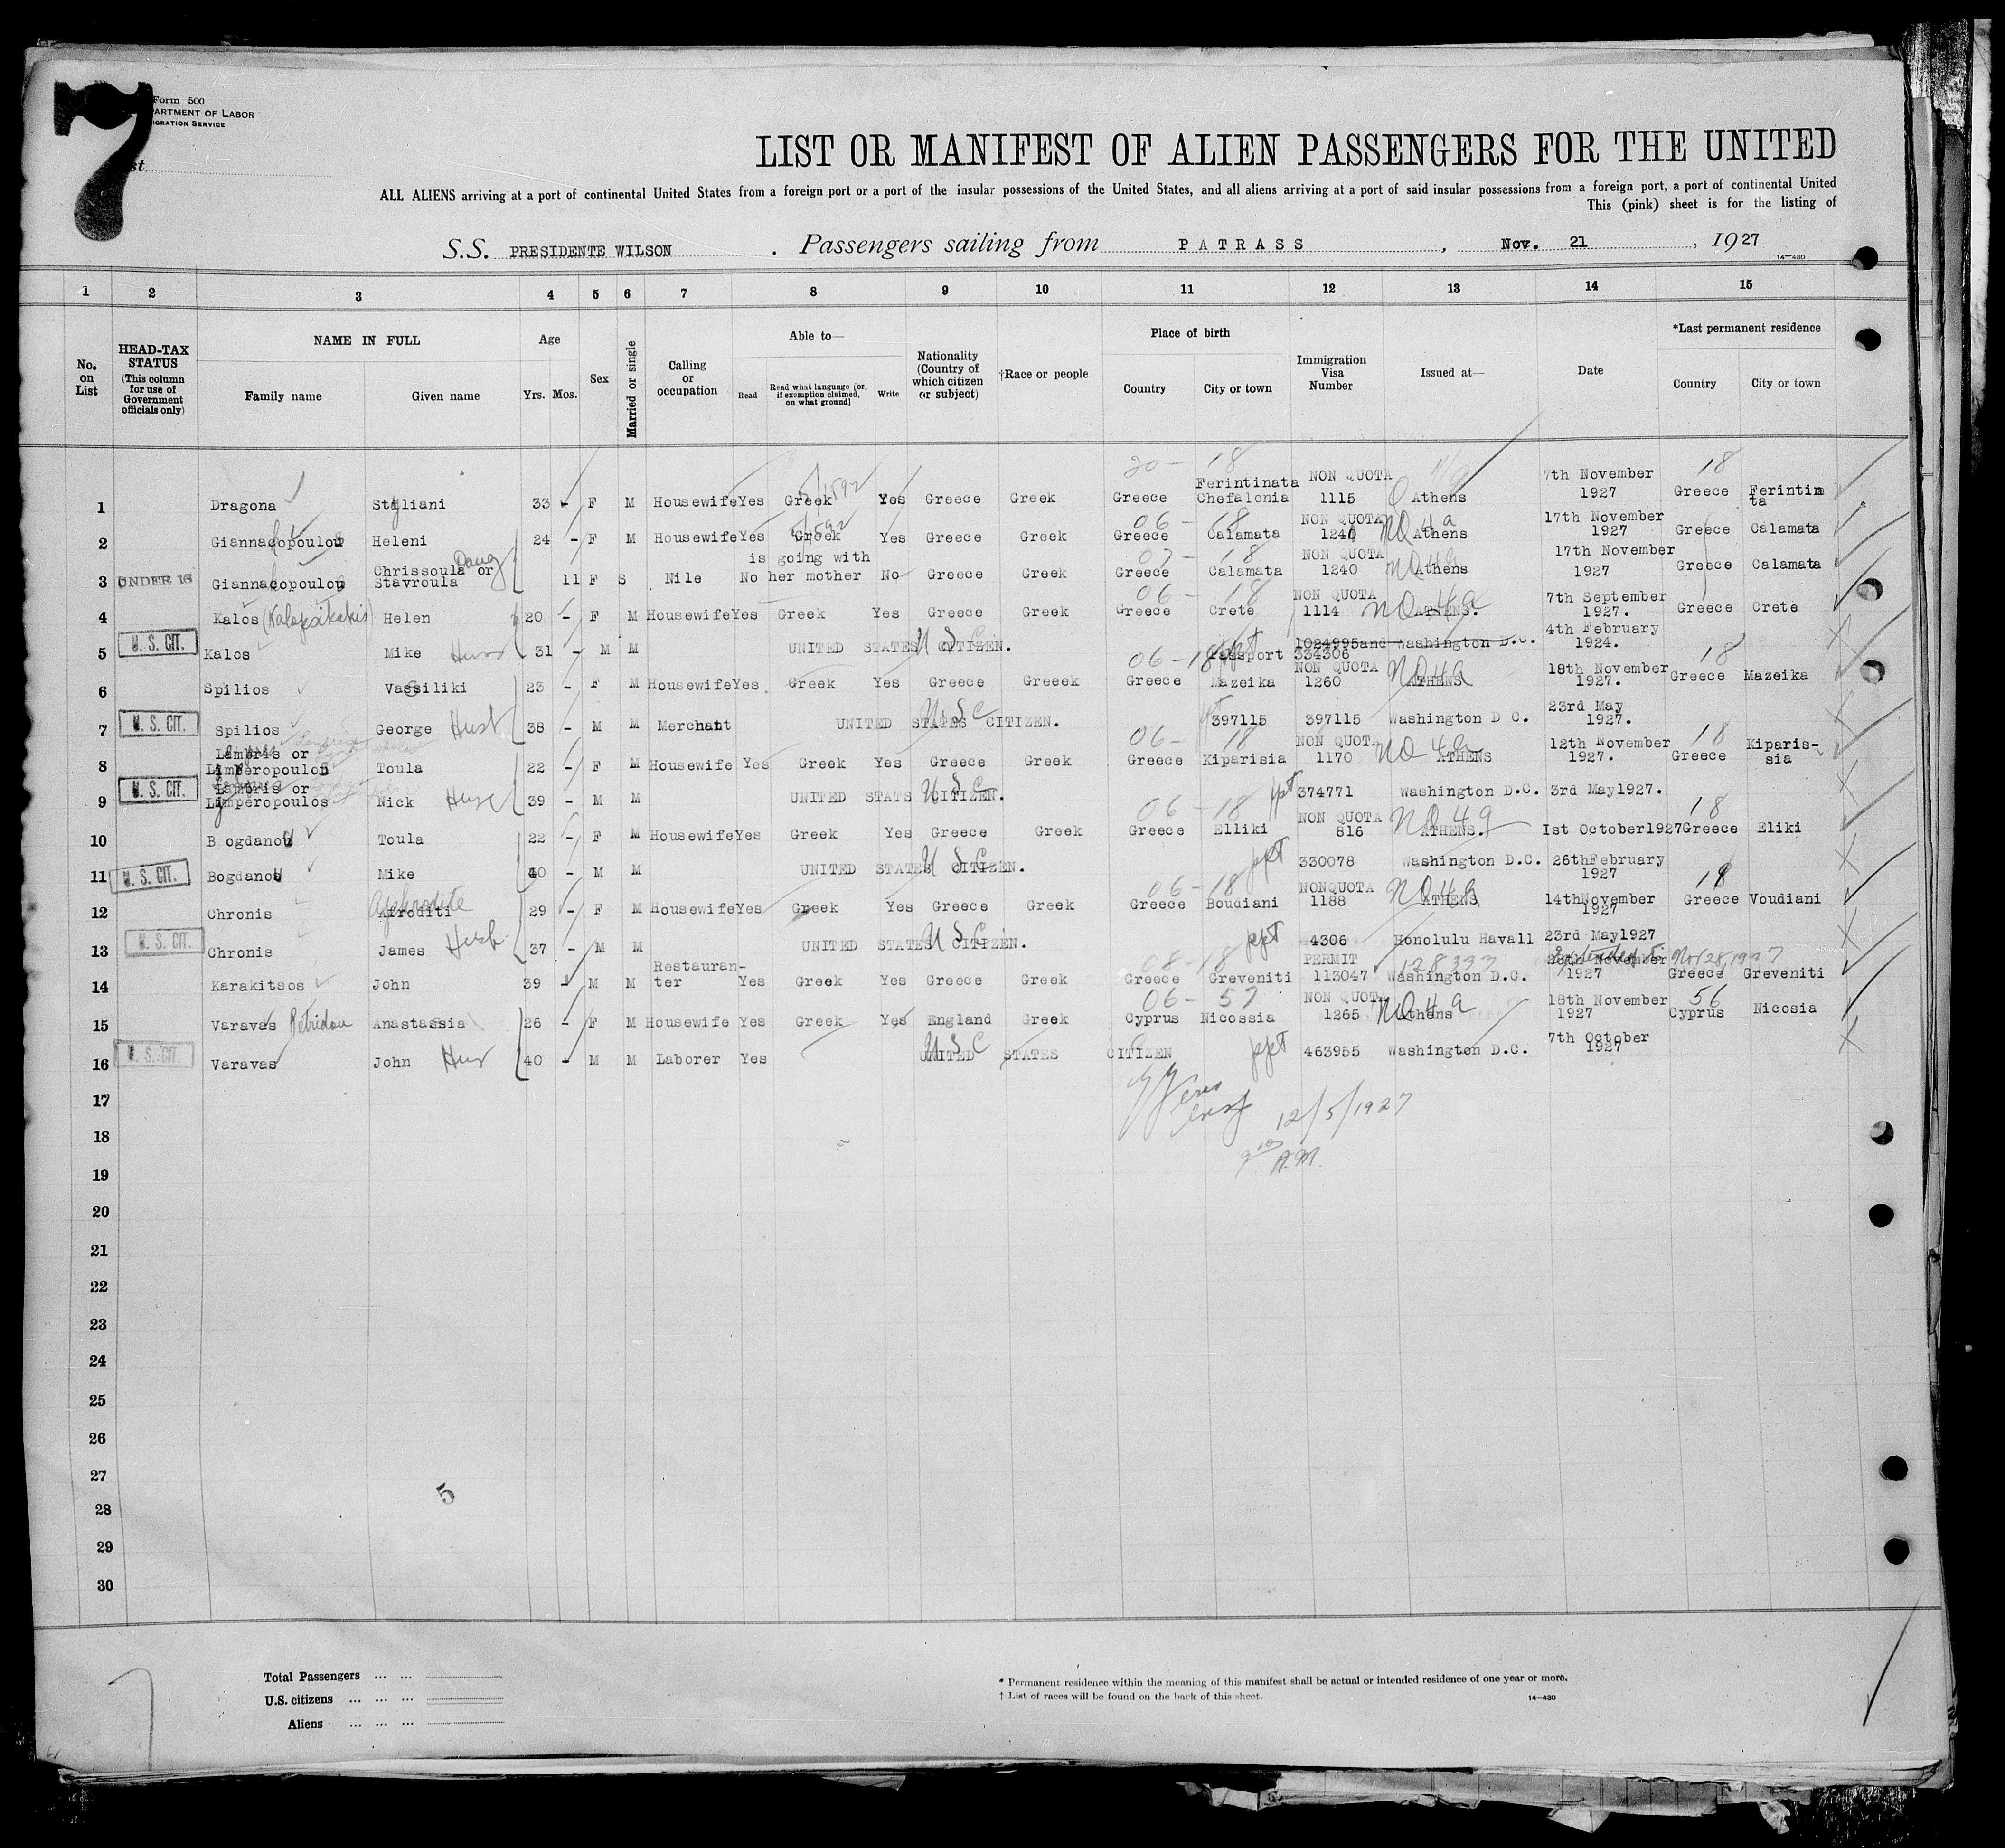 7
Form 500
ARTMENT OF LABOR
IGRATION SERVICE
st
LIST OR MANIFEST OF ALIEN PASSENGERS FOR THE UNITED
ALL ALIENS arriving at a port of continental United States from a foreign port or a port of the insular possessions of the United States, and all aliens arriving at a port of said insular possessions from a foreign port, a port of continental United
This (pink) sheet is for the listing of
S.S. PRESIDENTE WILSON . Passengers sailing from PATRASS , Nov. 21 , 1927
14—430
1 2 3 4 5 6 7 8 9 10 11 12 13 14 15
No. on List
HEAD-TAX STATUS (This column for use of Government officials only)
NAME IN FULL
Family name Given name
Age
Yrs. Mos.
Sex
Married or single
Calling or occupation
Able to—
Read Read what language (or, if exemption claimed, on what ground) Write
Nationality (Country of which citizen or subject)
†Race or people
Place of birth
Country City or town
Immigration Visa Number
Issued at—
Date
*Last permanent residence
Country City or town
20 - 18 18
1 Dragona Styliani 33 - F M Housewife Yes Greek 5/1592 Yes Greece Greek Greece Ferintinata Chefalonia NON QUOTA 1115 Athens 7th November 1927 Greece Ferintin ta
06 - 18
2 Giannacopoulou Heleni 24 - F M Housewife Yes Greek Yes Greece Greek Greece Calamata NON QUOTA 1240 NQ 4a Athens 17th November 1927 Greece Calamata
07 - 18
3 UNDER 16 Giannacopoulou Chrissoula or Stavroula Daug 11 F S Nile No is going with her mother No Greece Greek Greece Calamata NON QUOTA 1240 NQ 4a Athens 17th November 1927 Greece Calamata
06 - 18
4 Kalos Helen 20 - F M Housewife Yes Greek Yes Greece Greek Greece Crete NON QUOTA 1114 NQ 4a ATHENS. 7th September 1927. Greece Crete
5 U. S. CIT. Kalos Mike 31 - M M UNITED STATES CITIZEN. U S C Passport 1024995and 334306 Washington D.C. 4th February 1924.
06 - 18 18
6 Spilios Vassiliki 23 - F M Housewife Yes Greek Yes Greece Greeek Greece Mazeika NON QUOTA 1260 NQ 4a ATHENS 18th November 1927. Greece Mazeika
7 U. S. CIT. Spilios George Husb 38 - M M Merchant UNITED STATES CITIZEN. U S C 397115 397115 Washington D C. 23rd May 1927.
06 - 18 18
8 Lambris or Limperopoulou Toula 22 - F M Housewife Yes Greek Yes Greece Greek Greece Kiparisia NON QUOTA 1170 NQ 4a ATHENS 12th November 1927. Greece Kiparis- sia
9 U. S. CIT. Lambris or Limperopoulos Nick 39 - M M UNITED STATS CITIZEN. U S C ppt 374771 Washington D.C. 3rd May1927.
06 - 18 18
10 Bogdanou Toula 22 - F M Housewife Yes Greek Yes Greece Greek Greece Elliki NON QUOTA 816 NQ 4a ATHENS. Ist October1927 Greece Eliki
11 U. S. CIT. Bogdanou Mike 40 - M M UNITED STATES CITIZEN. U S C ppt 330078 Washington D.C. 26thFebruary 1927
06 - 18 18
12 Chronis Afroditi Aphrodite 29 - F M Housewife Yes Greek Yes Greece Greek Greece Boudiani NONQUOTA 1188 NQ 4a ATHENS 14thNovember 1927 Greece Voudiani
13 U. S. CIT. Chronis James Husb 37 - M M UNITED STATES CITIZEN. U S C ppt 4306 Honolulu Havall 23rd May1927
08 - 18
14 Karakitsos John 39 - M M Restauran- ter Yes Greek Yes Greece Greek Greece Greveniti PERMIT 113047 Washington D.C. November 1927 Nov 28, 1927 Greece Greveniti
06 - 57 56
15 Varavas Petridou Anastassia 26 - F M Housewife Yes Greek Yes England Greek Cyprus Nicossia NON QUOTA 1265 NQ 4a Athens 18th November 1927 Cyprus Nicosia
16 U. S. CIT. Varavas John 40 - M M Laborer Yes UNITED STATES CITIZEN U S C ppt 463955 Washington D.C. 7th October 1927
17
12/5/1927
18
A.M.
19
20
21
22
23
24
25
26
27
28
5
29
30
Total Passengers ... ...
U.S. citizens ... ... ...
Aliens ... ... ...
* Permanent residence within the meaning of this manifest shall be actual or intended residence of one year or more.
† List of races will be found on the back of this sheet.
14—430